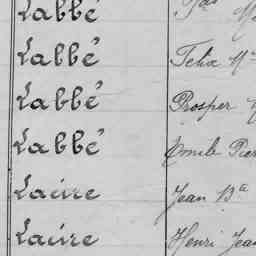 Labbé
Labbé Felix M
Labbé Prosper
Labbé Emile Pier
Lacire Jean Bte
Lacire Henri Jean